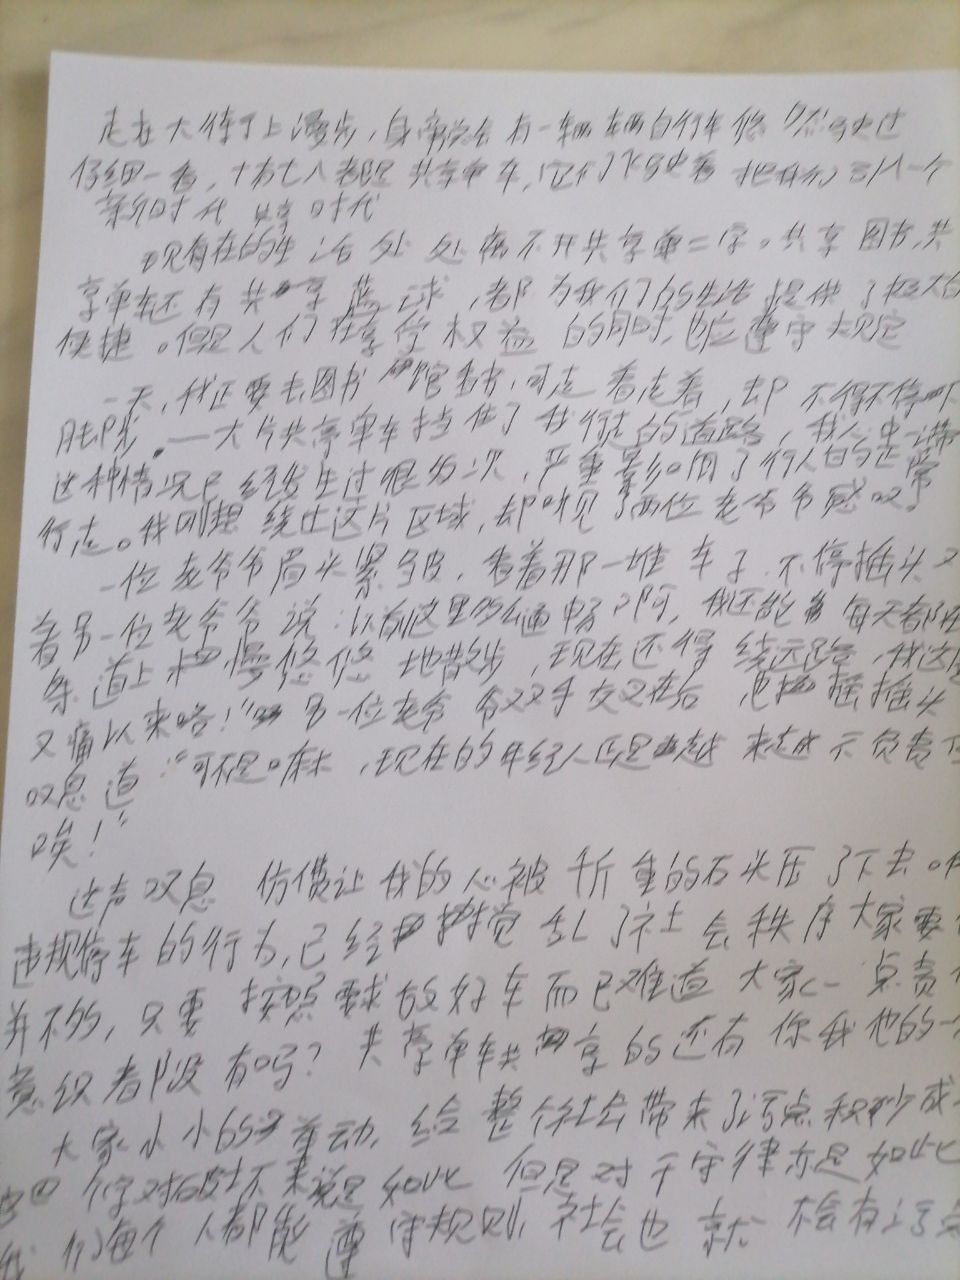 走在大街上漫步,身旁常会有一辆辆自行车悠然驶过
仔细一看,十有七八都是共享单车,它们行驶着把我们引入一个
新时代 共享时代
现在的生活处处离不开共享单二字。共享图书,共
享单车还有共享篮球,都为我们的生活提供了极大的
便捷。但是人们在享受权益的同时,也应遵守规定
一天,我正要去图书馆看书,可走着走着,却不得不停下
脚步。一大片共享单车挡住了我行走的道路,我
这种情况已经发生过很多次,严重影响了行人的正常
行走。我刚想绕过这片区域,却听见了两位老爷爷感叹
一位老爷爷眉头紧皱,看着那一堆车子不停摇头又
着另一位老爷爷说:以前这里多么通畅啊,我还能每天都在
条道上慢悠悠地散步,现在还得绕远路,我这
又痛以来咯!”另一位老爷爷双手交叉在后 也摇摇头
叹息道:“可不是嘛,现在的年轻人还是越来越不负责
唉!”
这声叹息 仿佛让我的心被千斤重的石头压了下去。
违规停车的行为,已经搅乱了社会秩序大家要
并不多,只要按照要求放好车而已难道大家一点责
意识都没有吗?共享单车共享的还有你我他的一
大家小小的举动,给整个社会带来了污点积少成
个字对破坏来说是如此 但是对于守律亦是如此
我们每个人都能遵守规则,社会也就不会有污点